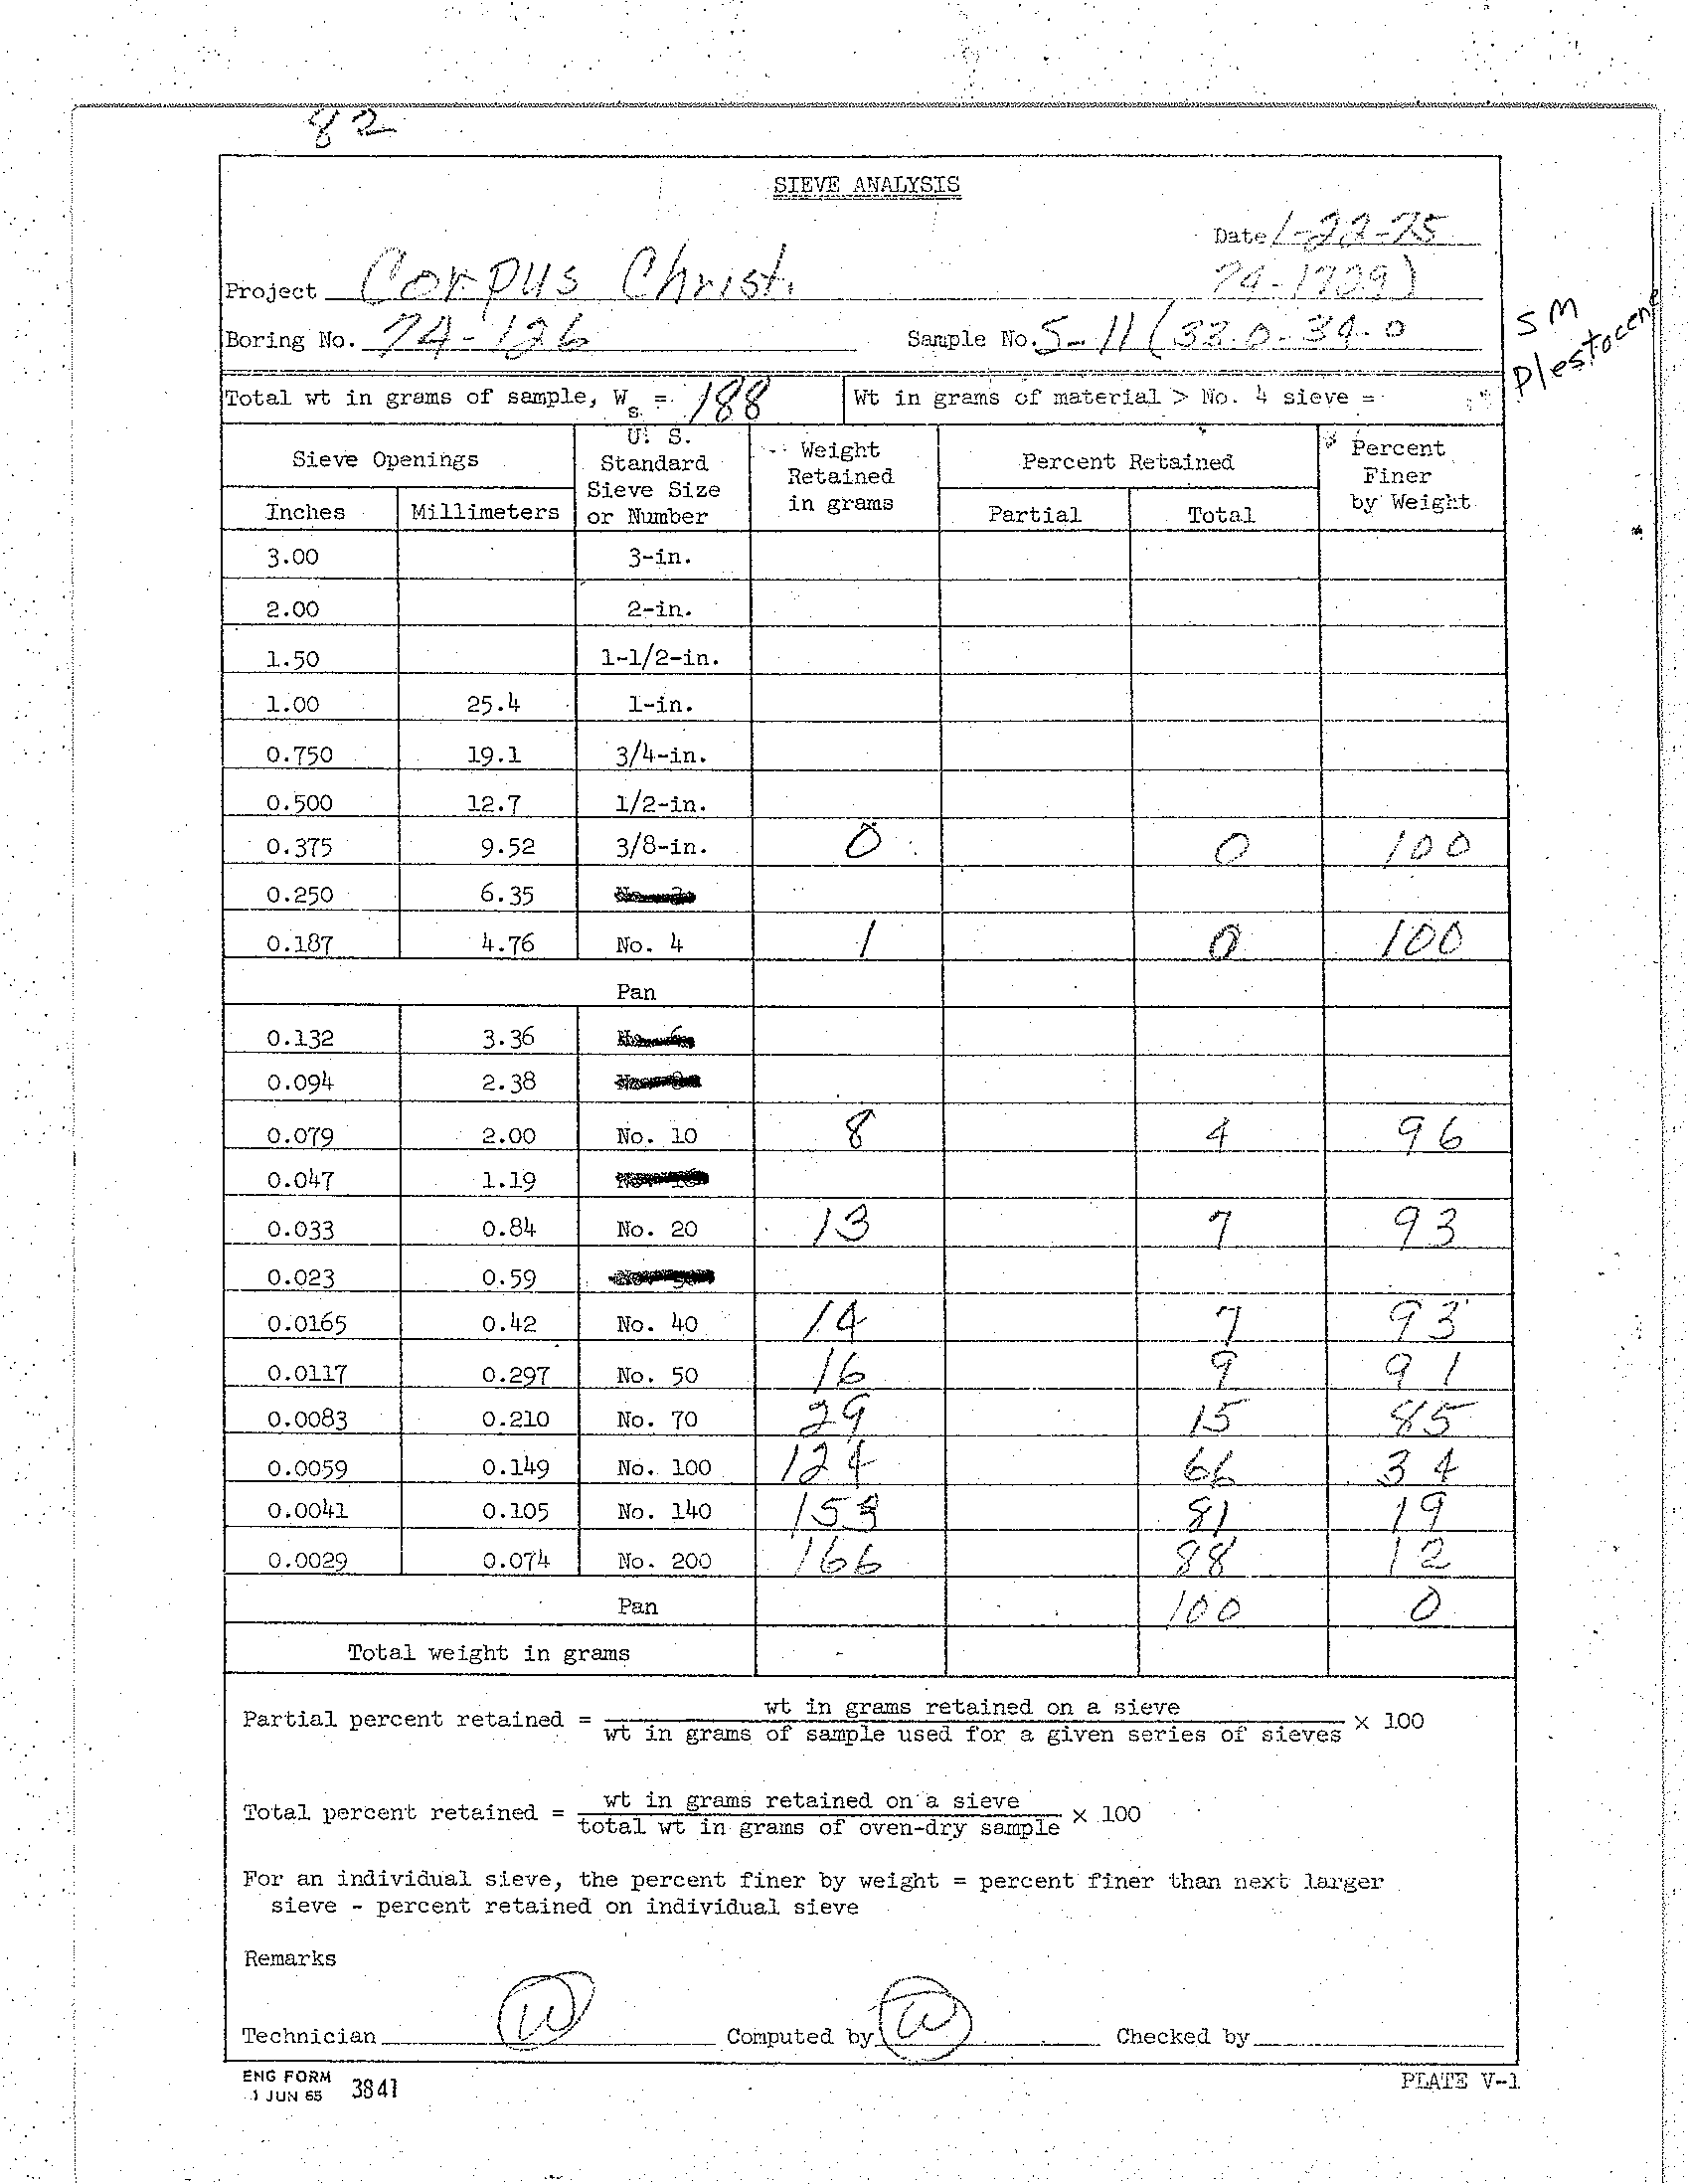 82
SIEVE ANALYSIS
Date 1-22-75
Project Corpus Christi
74-1729)
Boring No. 74-126 Sample No. S-11 (33.0-34.0
SM
Plestocene
Total wt in grams of sample, Ws = 188 Wt in grams of material > No. 4 sieve =
Sieve Openings U. S. Standard Sieve Size or Number Weight Retained in grams Percent Retained Percent Finer by Weight
Inches Millimeters Partial Total
3.00 3-in.
2.00 2-in.
1.50 1-1/2-in.
1.00 25.4 1-in.
0.750 19.1 3/4-in.
0.500 12.7 1/2-in.
0.375 9.52 3/8-in. 0 0 100
0.250 6.35
0.187 4.76 No. 4 1 0 100
Pan
0.132 3.36
0.094 2.38
0.079 2.00 No. 10 8 4 96
0.047 1.19
0.033 0.84 No. 20 13 7 93
0.023 0.59
0.0165 0.42 No. 40 14 7 93
0.0117 0.297 No. 50 16 9 91
0.0083 0.210 No. 70 29 15 85
0.0059 0.149 No. 100 124 66 34
0.0041 0.105 No. 140 153 81 19
0.0029 0.074 No. 200 166 88 12
Pan 100 0
Total weight in grams
Partial percent retained = wt in grams retained on a sieve
wt in grams of sample used for a given series of sieves × 100
Total percent retained = wt in grams retained on a sieve
total wt in grams of oven-dry sample × 100
For an individual sieve, the percent finer by weight = percent finer than next larger
sieve - percent retained on individual sieve
Remarks
Technician W Computed by W Checked by
ENG FORM
1 JUN 65 3841
PLATE V-1